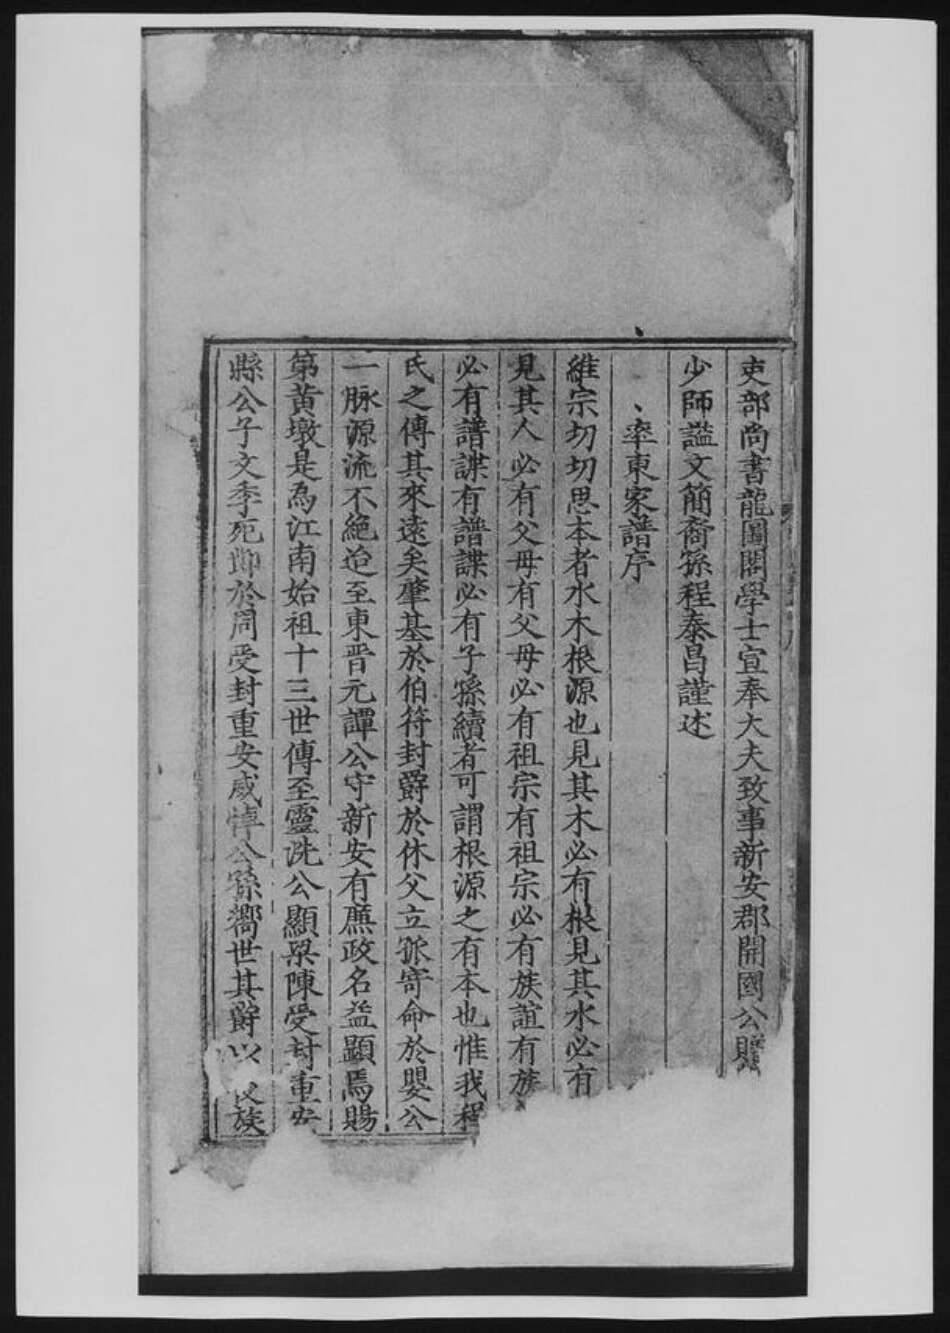 吏部尚書龍圖閣學士宣奉大夫致事新安郡開國公贈
少師謚文簡裔孫程泰昌謹述
率東家譜序
維宗切切思本者水木根源也見其木必有根見其水必有
見其人必有父母有父母必有祖宗有祖宗必有族誼有族
必有譜諜有譜諜必有子孫續者可謂根源之有本也惟我程
氏之傳其來遠矣肇基於伯符封爵於休父立孤寄命於嬰公
一脉源流不絕迨至東晋元譚公守新安有廉政名益顯焉賜
第黄墩是為江南始祖十三世傳至靈洗公顯梁陳受封重安
縣公子文季死節於周受封重安威悼公孫嚮世其爵以 族